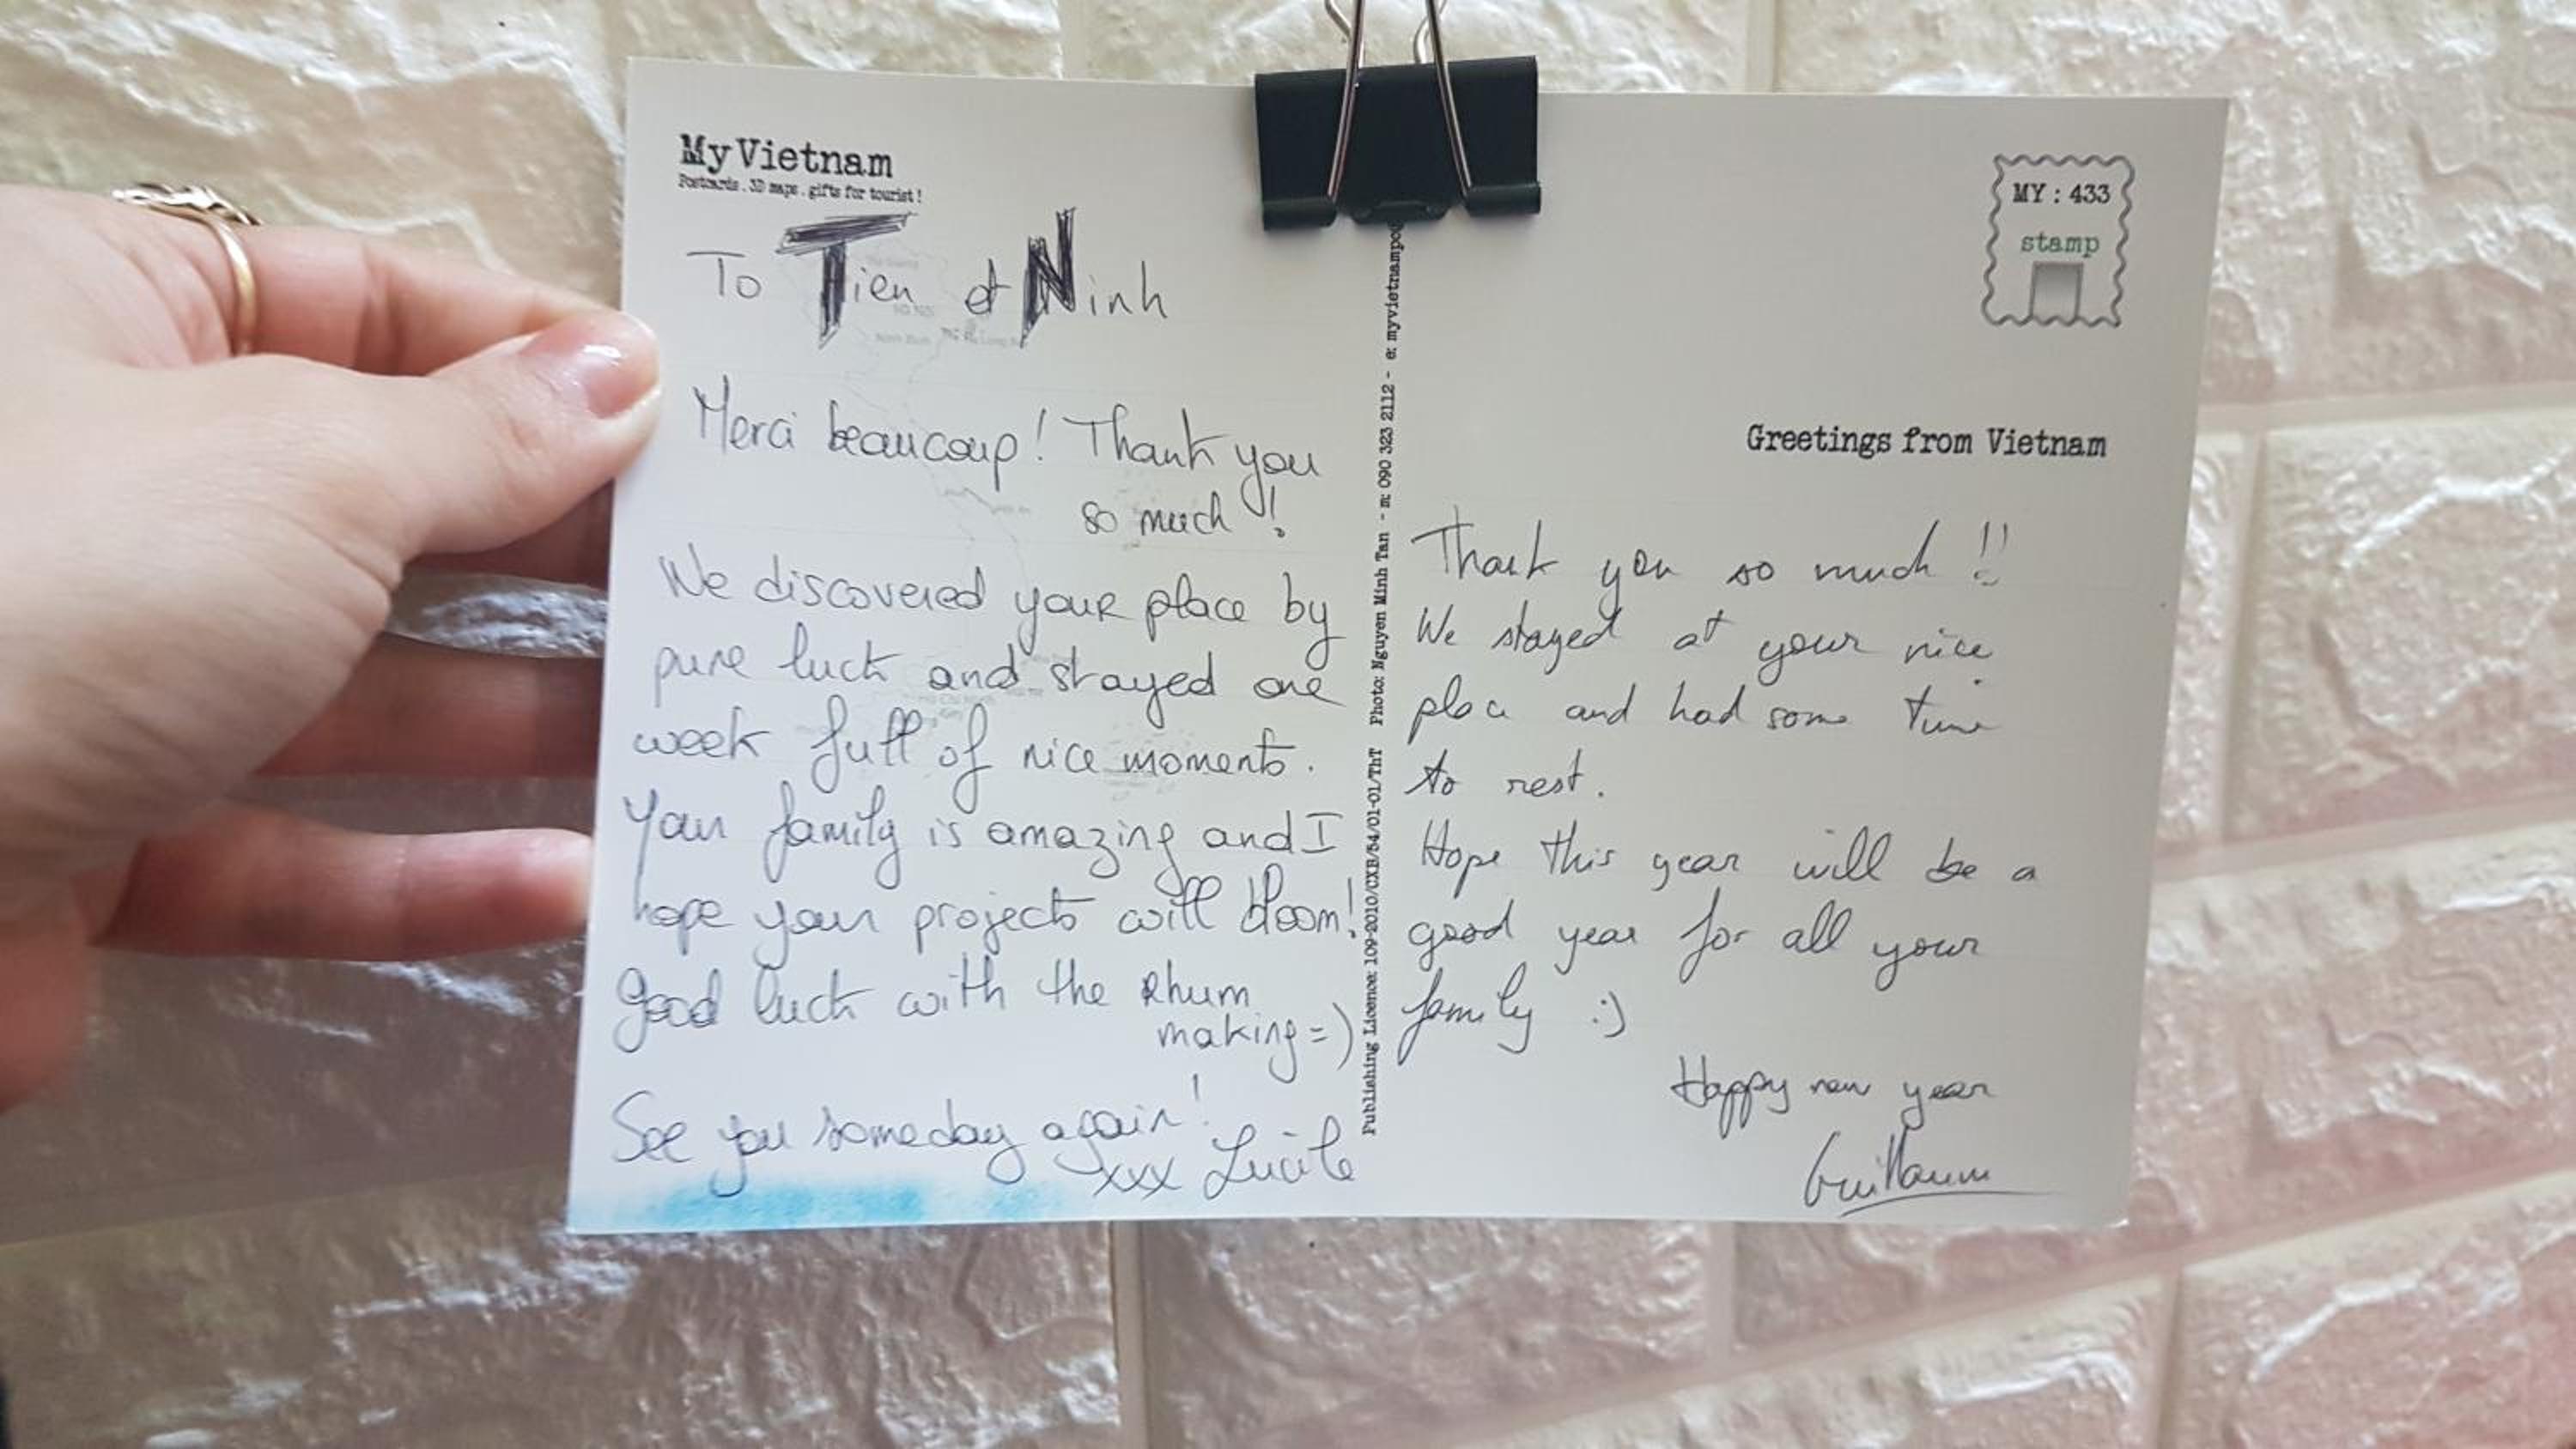 My Vietnam
Postcards . 3D maps . gifts for tourist !
To Tien et Ninh
Merci beaucoup! Thank you
so much !
We discovered your place by
pure luck and stayed one
week full of nice moments.
Your family is amazing and I
hope your projects will bloom!
Good luck with the Rhum
making =)
See you someday again!
xxx Lucile
Publishing Licence: 109-2010/CXB/54/01-01/ThT Photo: Nguyen Minh Tan - m: 090 323 2112 - e: myvietnampo
MY : 433
stamp
Greetings from Vietnam
Thank you so much !!
We stayed at your nice
place and had some time
to rest.
Hope this year will be a
good year for all your
family :)
Happy new year
Guillaume